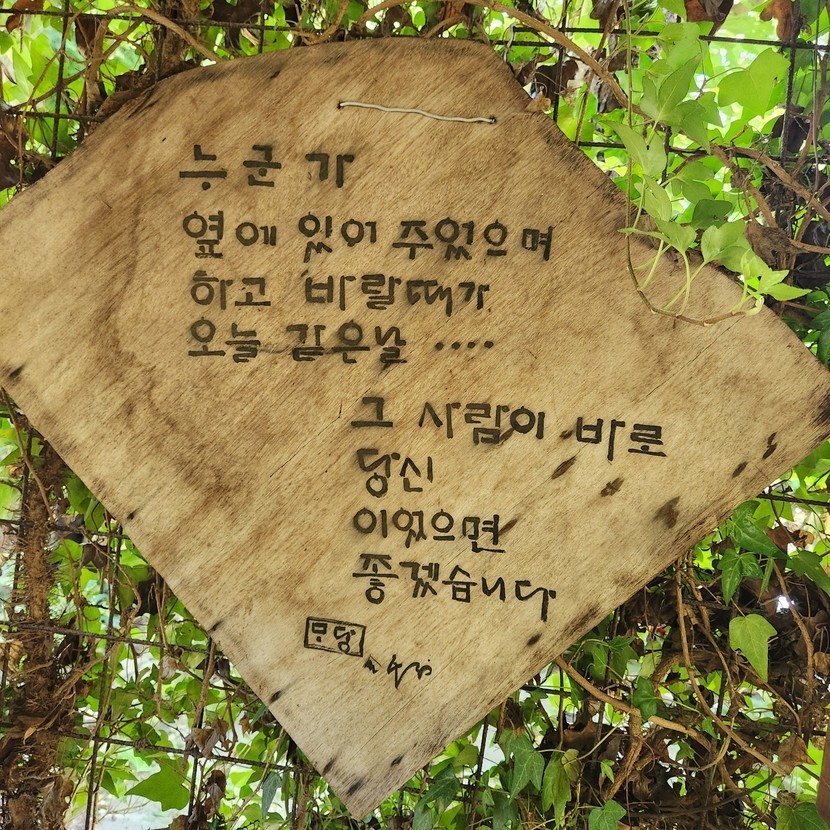 누군가
옆에 있어 주었으며
하고 바랄때가
오늘 같은날 ....
그 사람이 바로
당신
이었으면
좋겠습니다